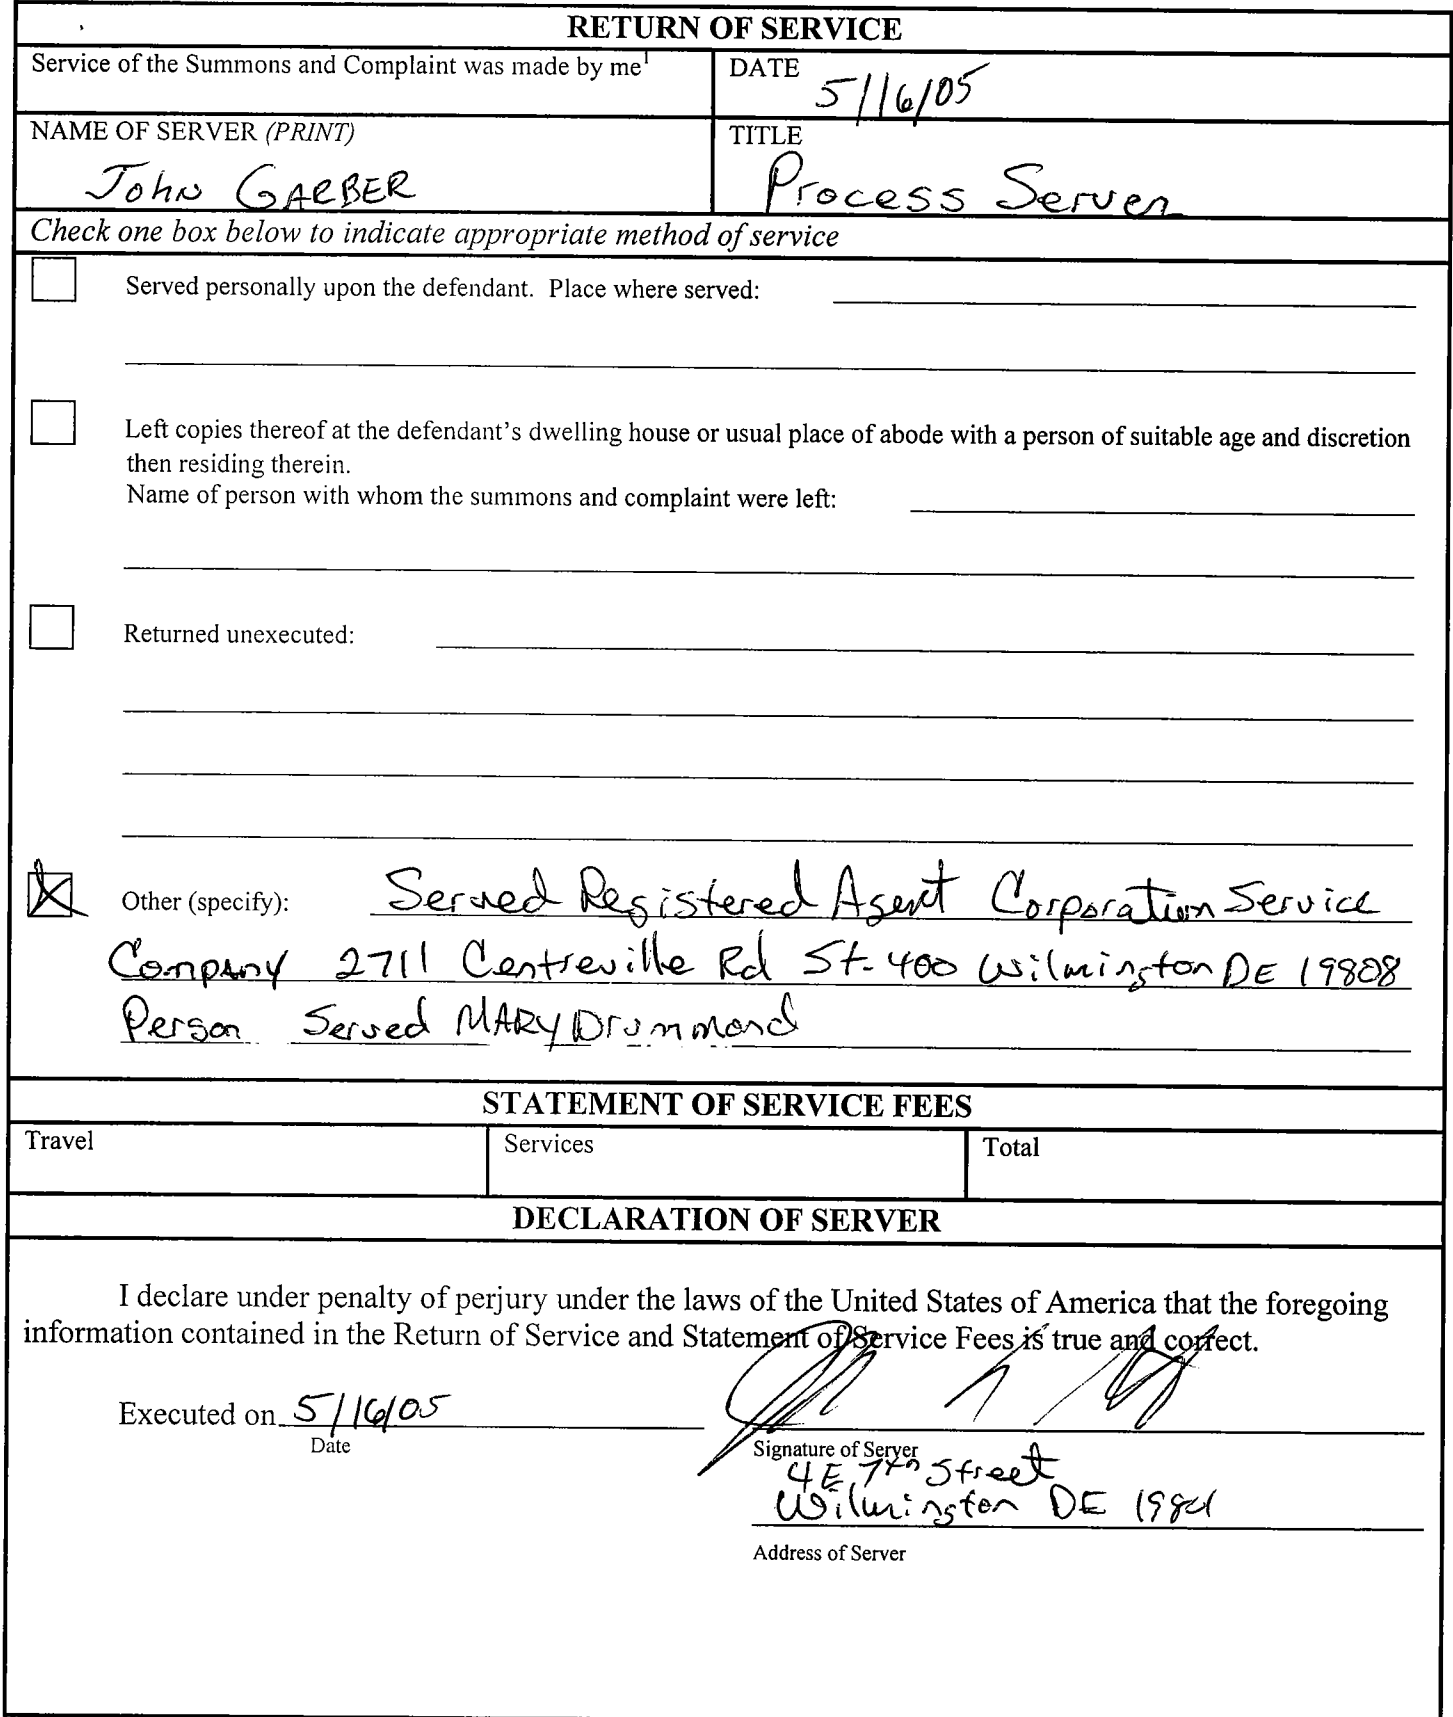 RETURN OF SERVICE
Service of the Summons and Complaint was made by me¹
DATE
5/16/05
NAME OF SERVER (PRINT)
John GARBER
TITLE
Process Server
Check one box below to indicate appropriate method of service
Served personally upon the defendant. Place where served:
Left copies thereof at the defendant's dwelling house or usual place of abode with a person of suitable age and discretion
then residing therein.
Name of person with whom the summons and complaint were left:
Returned unexecuted:
Other (specify): Served Registered Agent Corporation Service
Company 2711 Centreville Rd St. 400 Wilmington DE 19808
Person Served MARY Drummond
STATEMENT OF SERVICE FEES
Travel
Services
Total
DECLARATION OF SERVER
I declare under penalty of perjury under the laws of the United States of America that the foregoing
information contained in the Return of Service and Statement of Service Fees is true and correct.
Executed on 5/16/05
Date
Signature of Server
4 E 7th Street
Wilmington DE 19801
Address of Server